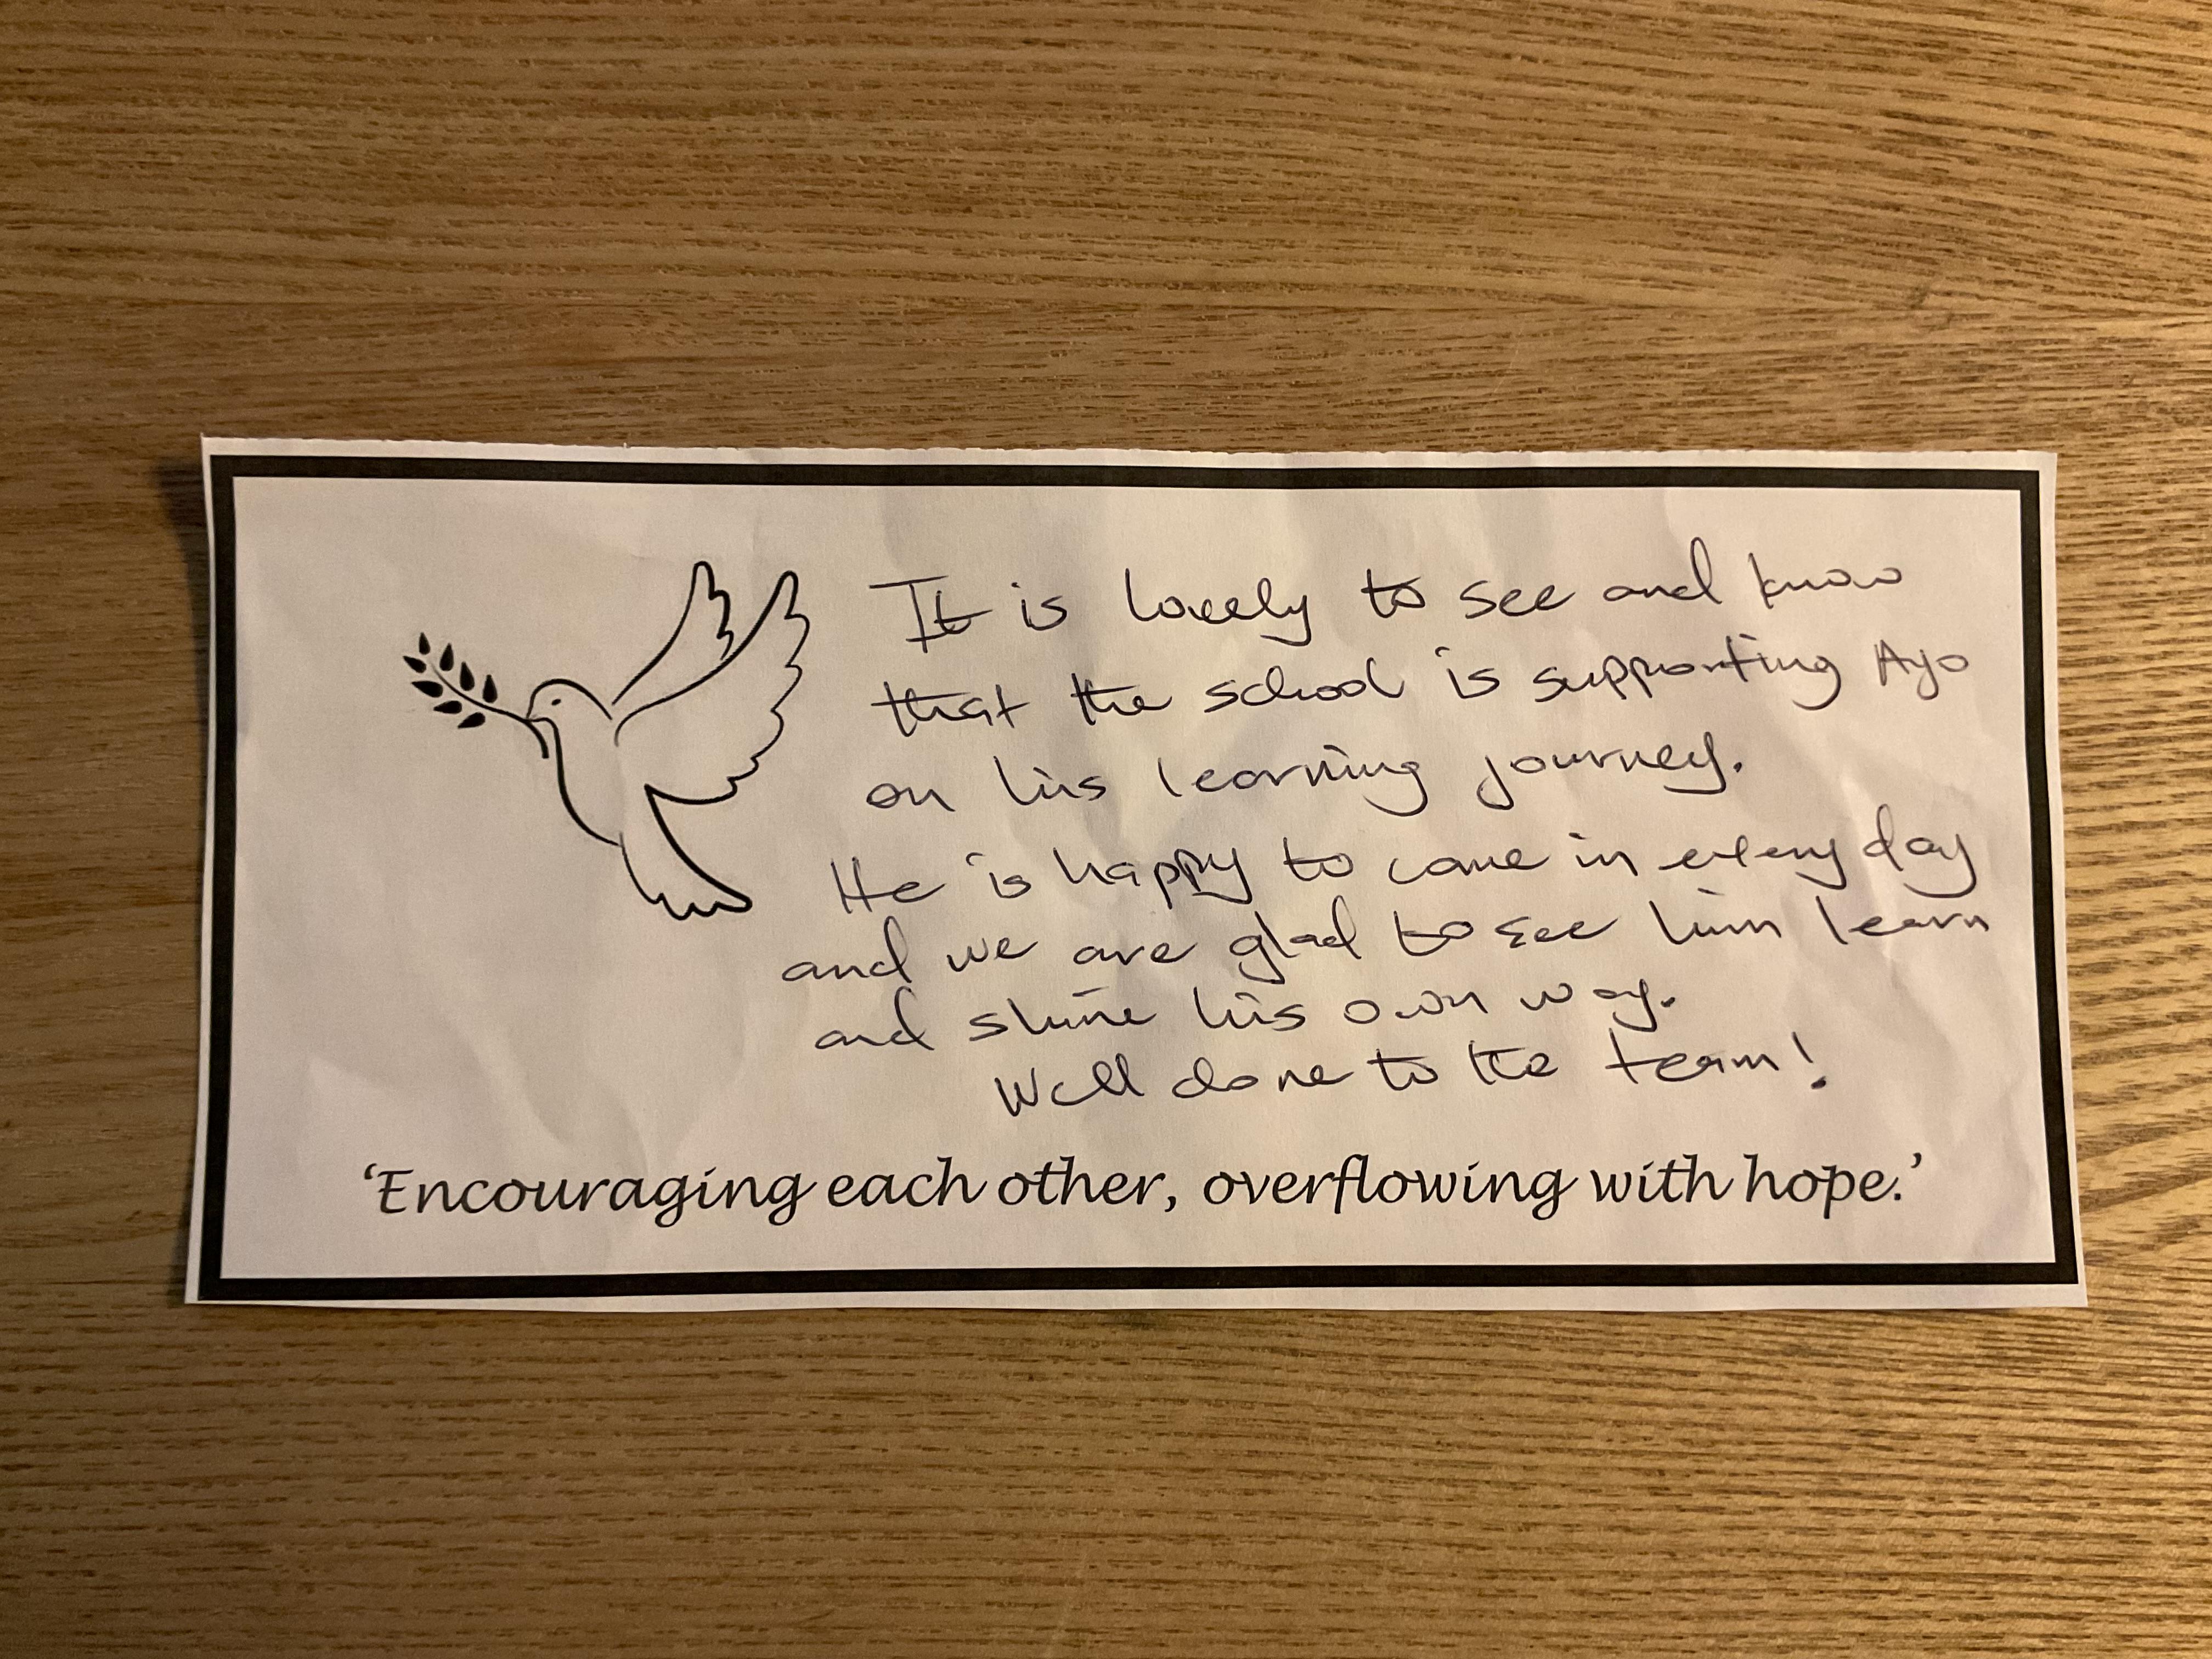 It is lovely to see and know
that the school is supporting Ayo
on his learning journey.
He is happy to come in every day
and we are glad to see him learn
and shine his own way.
Well done to the team!
‘Encouraging each other, overflowing with hope.’